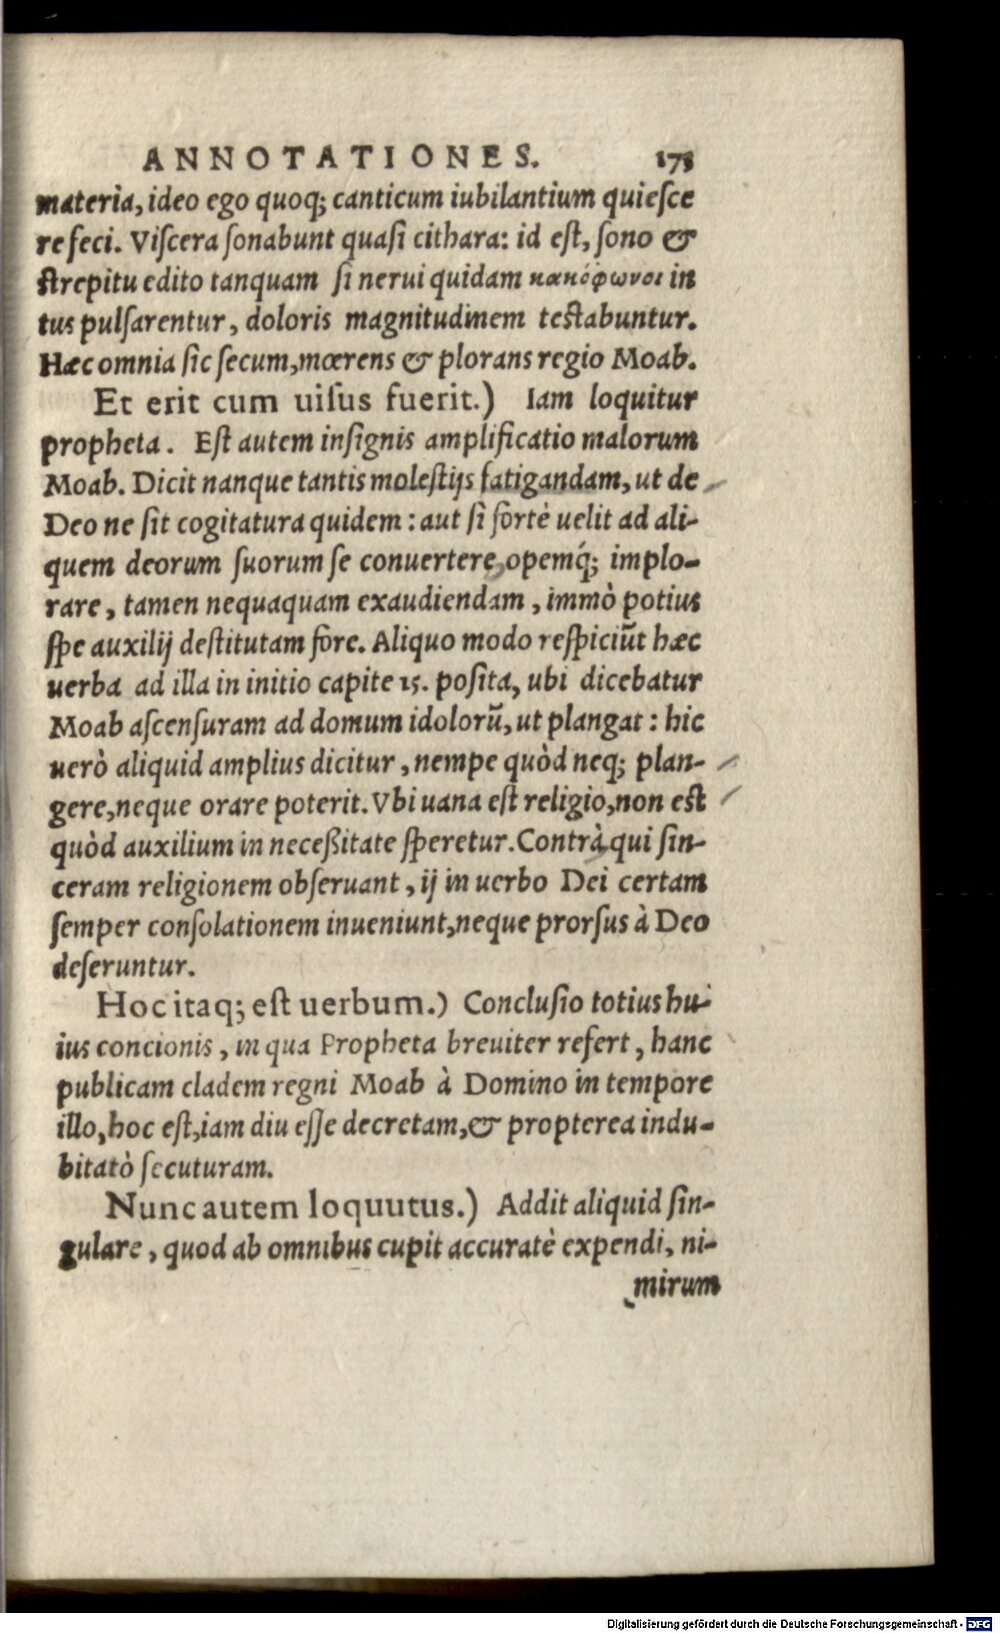 ANNOTATIONES. 175
materia, ideo ego quoq; canticum iubilantium quieſce
re feci. Viſcera ſonabunt quaſi cithara: id eſt, ſono &
ſtrepitu edito tanquam ſi nerui quidam κακόφωνοι in
tus pulſarentur, doloris magnitudinem teſtabuntur.
Hæc omnia ſic ſecum, mœrens & plorans regio Moab.
Et erit cum uiſus fuerit.) Iam loquitur
propheta. Eſt autem inſignis amplificatio malorum
Moab. Dicit nanque tantis moleſtijs fatigandam, ut de
Deo ne ſit cogitatura quidem: aut ſi fortè uelit ad ali-
quem deorum ſuorum ſe conuertere, opemq́; implo-
rare, tamen nequaquam exaudiendam, immò potius
ſpe auxilij deſtitutam fore. Aliquo modo reſpiciūt hæc
uerba ad illa in initio capite 15. poſita, ubi dicebatur
Moab aſcenſuram ad domum idolorū, ut plangat: hic
uerò aliquid amplius dicitur, nempe quòd neq; plan-
gere, neque orare poterit. Vbi uana eſt religio, non eſt
quòd auxilium in neceßitate ſperetur. Contrà, qui ſin-
ceram religionem obſeruant, ij in uerbo Dei certam
ſemper conſolationem inueniunt, neque prorſus à Deo
deſeruntur.
Hoc itaq; eſt uerbum.) Concluſio totius hu-
ius concionis, in qua Propheta breuiter refert, hanc
publicam cladem regni Moab à Domino in tempore
illo, hoc eſt, iam diu eſſe decretam, & propterea indu-
bitatò ſecuturam.
Nunc autem loquutus.) Addit aliquid ſin-
gulare, quod ab omnibus cupit accuratè expendi, ni-
mirum
Digitalisierung gefördert durch die Deutsche Forschungsgemeinschaft - DFG